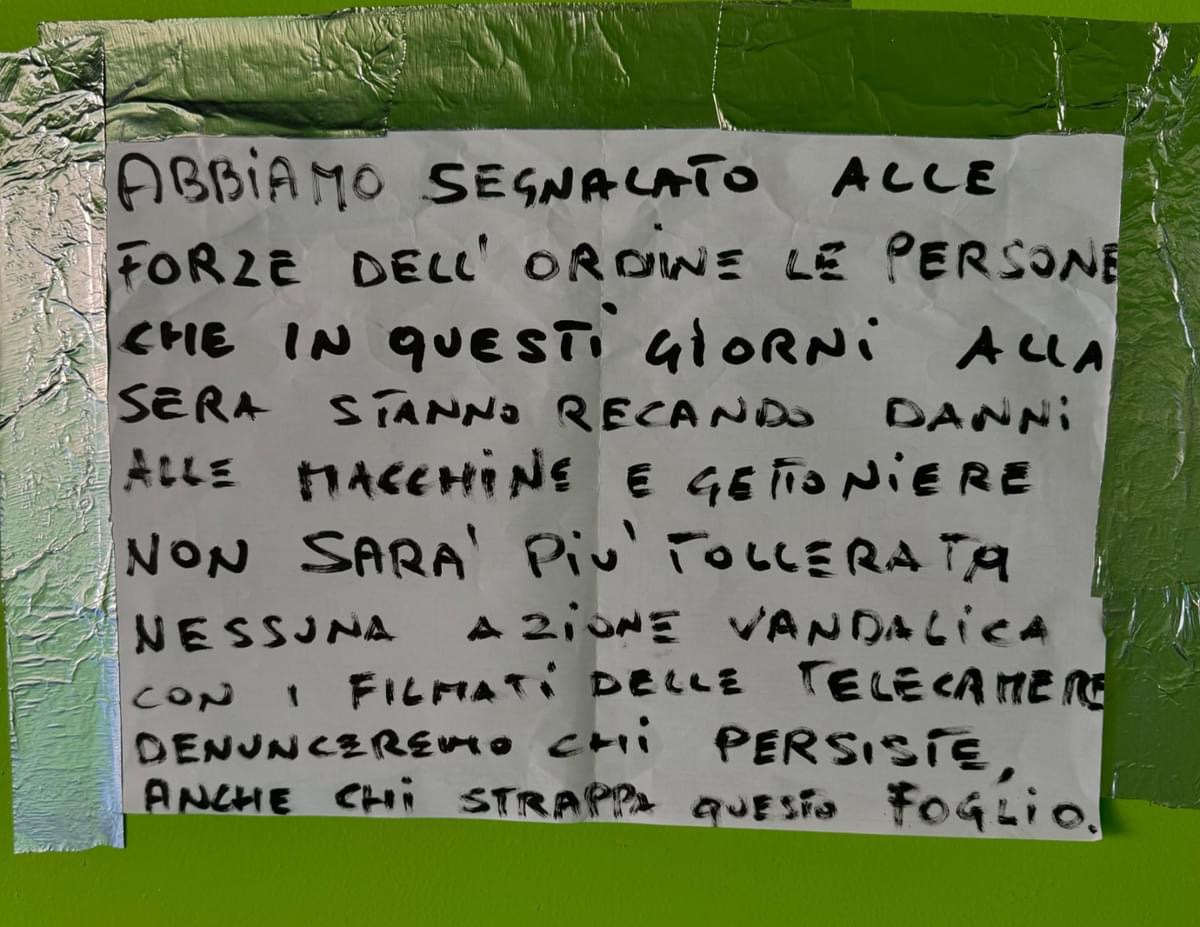 ABBiAMO SEGNALATO ALLE
FORZE DELL' ORDINE LE PERSONE
CHE IN QUESTi GIORNi ALLA
SERA STANNO RECANDO DANNi
ALLE MACCHiNE E GETTONiERE
NON SARA' PiU' TOLLERATA
NESSUNA AZiONE VANDALiCA
CON I FILMATi DELLE TELECAMERE
DENUNCEREMO CHi PERSISTE,
ANCHE CHi STRAPPA QUESTO FOGLiO.